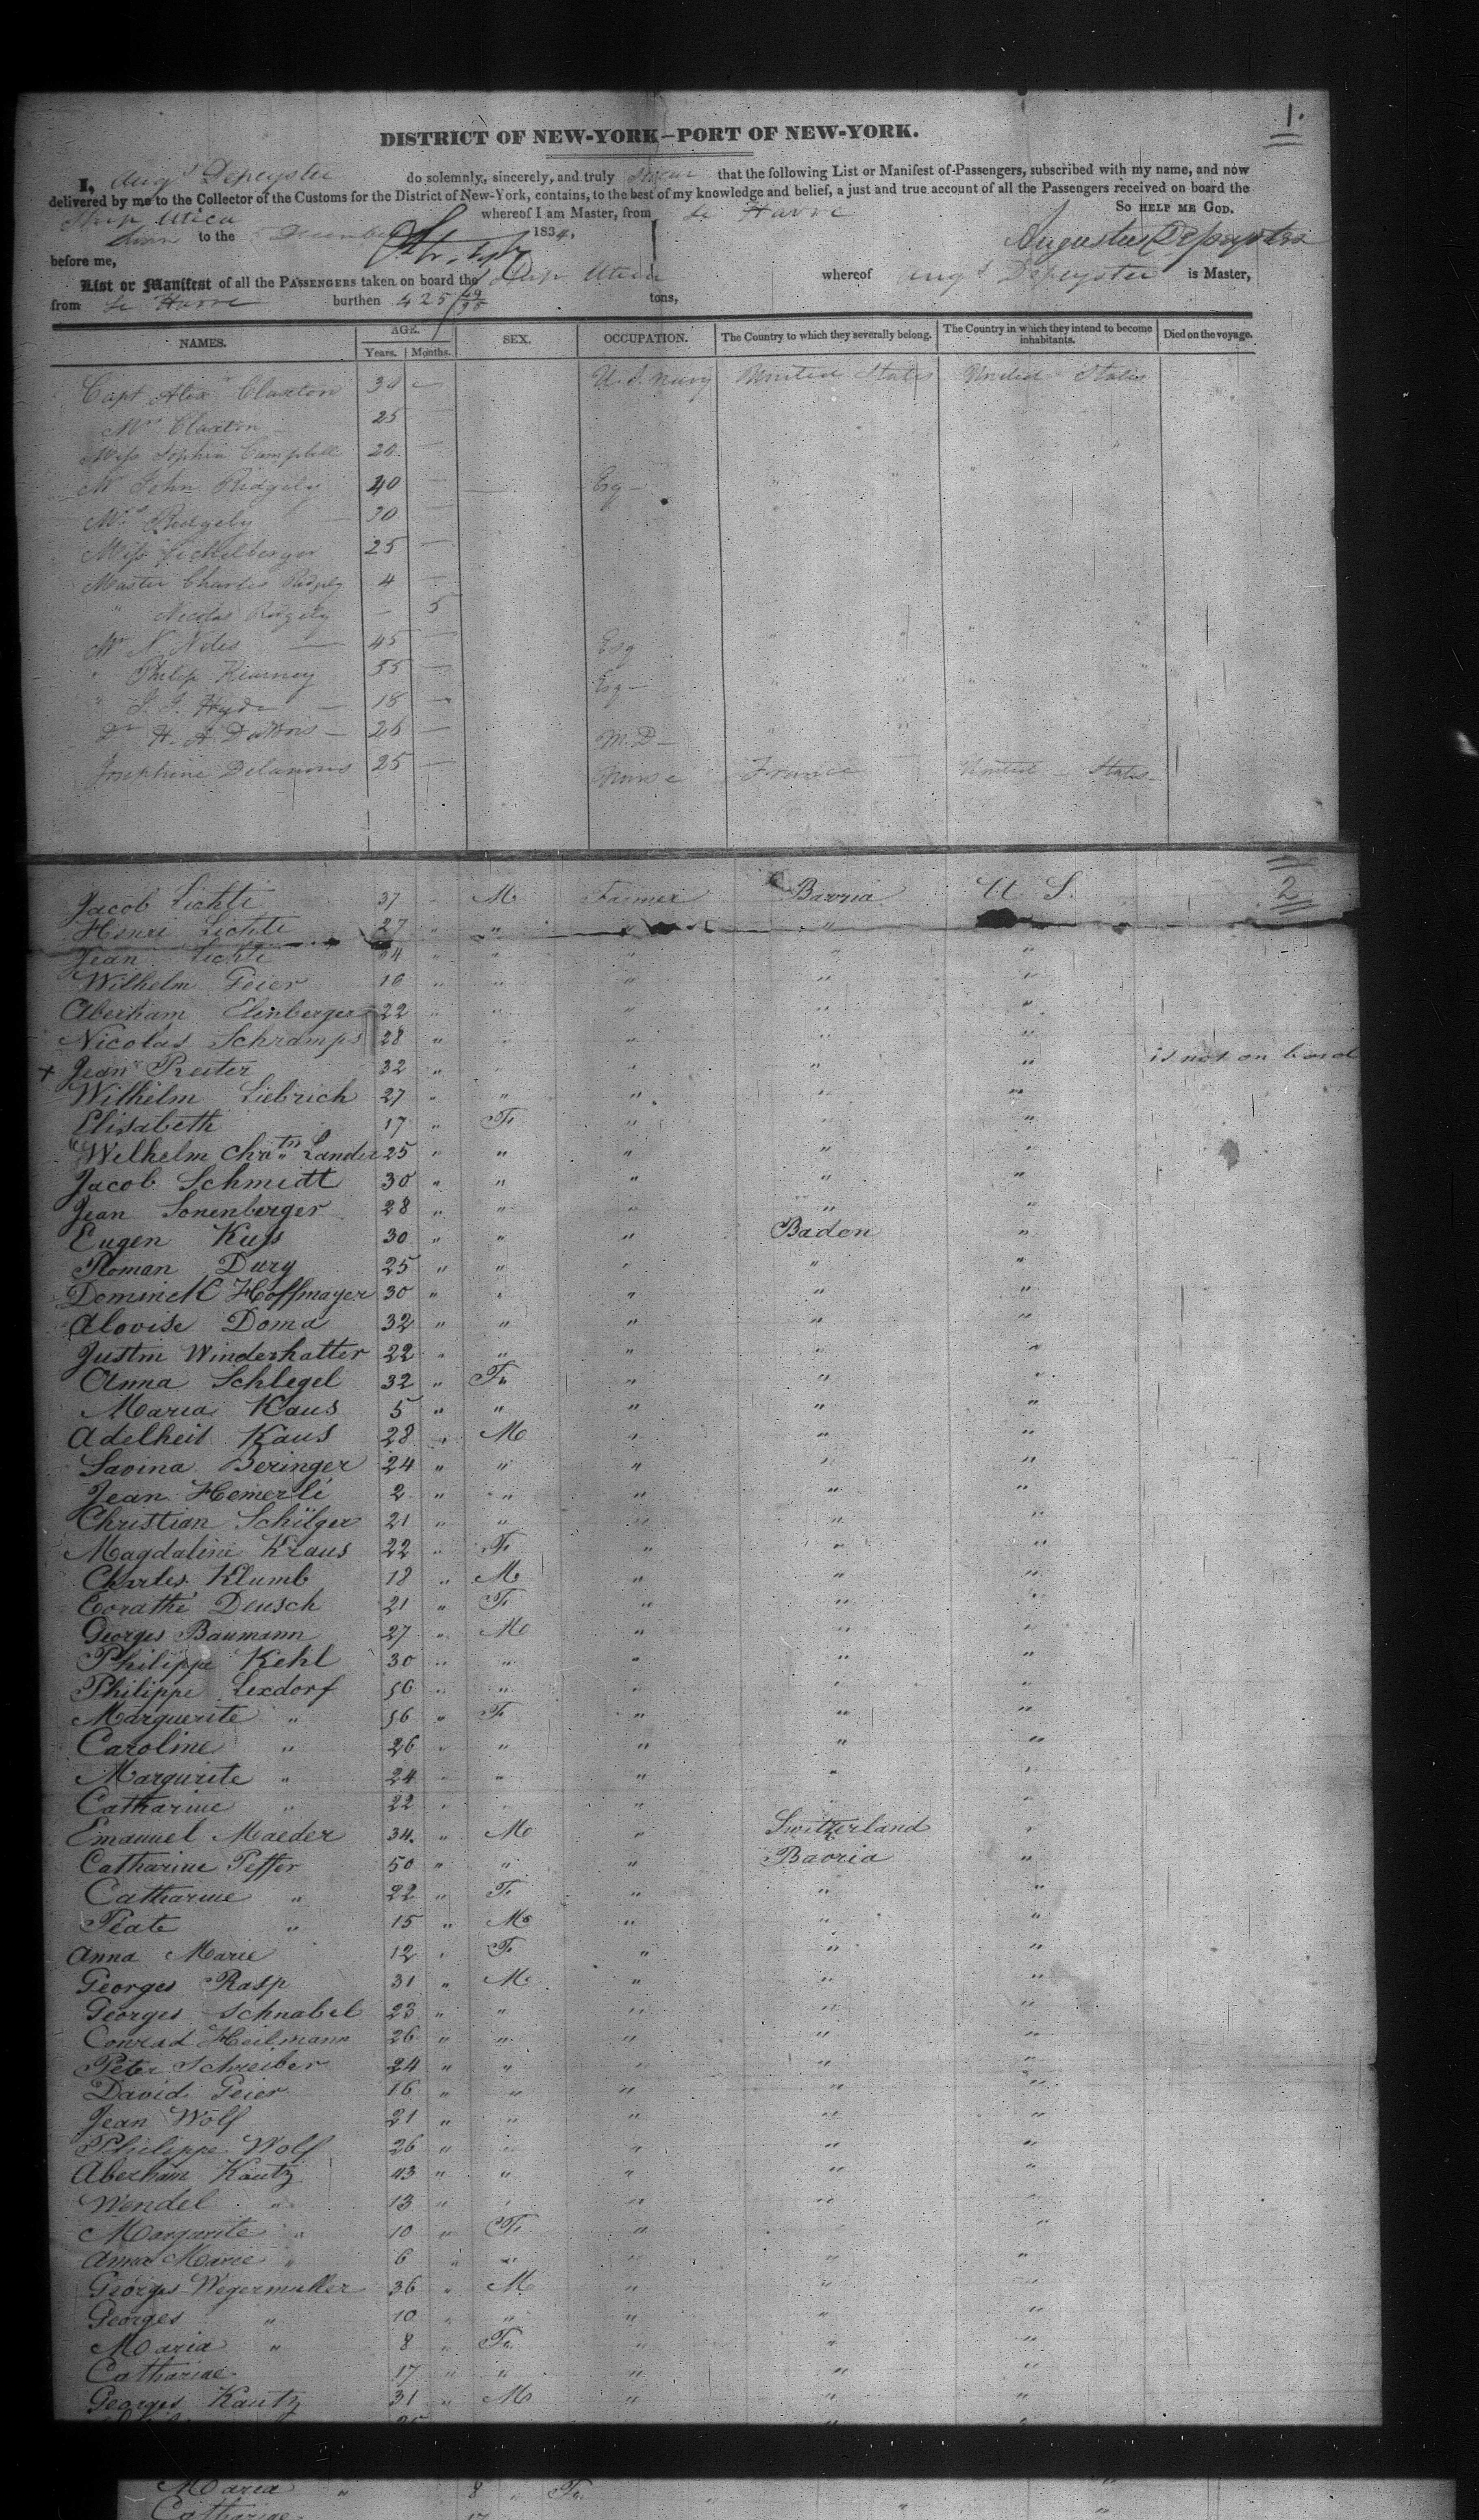 1.
DISTRICT OF NEW-YORK—PORT OF NEW-YORK.
I, Augs Depeyster do solemnly, sincerely, and truly swear that the following List or Manifest of Passengers, subscribed with my name, and now
delivered by me to the Collector of the Customs for the District of New-York, contains, to the best of my knowledge and belief, a just and true account of all the Passengers received on board the
Ship Utica whereof I am Master, from Le Havre SO HELP ME GOD.
Sworn to the 5 December 1834, Augustus Depeyster
before me,
List or Manifest of all the PASSENGERS taken on board the Ship Utica whereof Augs Depeyster is Master,
from Le Havre burthen 425 tons,
NAMES. AGE. Years. Months. SEX. OCCUPATION. The Country to which they severally belong. The Country in which they intend to become inhabitants. Died on the voyage.
Capt Alexr Claxton 30 — U.S. Navy United States United States
Mrs Claxton — 25 —
Miss Sophia Campbell 20 —
Mr John Ridgely 40 — Esq — " "
Mrs Ridgely — 30 —
Miss Eichelberger 25 —
Master Charles Ridgely 4 —
" Nicolas Ridgely — 5
Mr N. — 45 — Esq " " " "
" Philip Kearney 55 — Esq — " " " "
" S. J. Hyde — 18 —
Dr H. A. — 26 — M.D — " "
Josephine 25 — Nurse France United States
2
Jacob Lichti 37 " M Farmer Bavria U S.
Henri Lichti 27 " " " "
Jean Lichti 34 " " " " "
Wilhelm Geier 16 " " " " "
Aberham Elinberger 22 " " " " "
Nicolas Schramps 28 " " " " "
+ Jean Reiter 32 " " " " " is not on board
Wilhelm Liebrich 27 " " " " "
Elisabeth 17 " F " " "
Wilhelm Chrtn Lander 25 " " " " "
Jacob Schmidt 30 " " " " "
Jean Sonenberger 28 " " " " "
Eugen Kuss 30 " " " Baden "
Roman Dury 25 " " " " "
Dominck Hoffmayer 30 " " " " "
Alovise Doma 32 " " " " "
Justin Winderhatter 22 " " " " "
Anna Schlegel 32 " F " " "
Maria Kaus 5 " " " " "
Adelheit Kaus 28 " M " " "
Savina Beringer 24 " " " " "
Jean Hemerli 2 " " " " "
Christian Schilger 21 " " " " "
Magdaline Kraus 22 " F " " "
Charles Klumb 18 " M " " "
Corathe Deusch 21 " F " " "
Georges Baumann 27 " M " " "
Philippe Kehl 30 " " " " "
Philippe Lexdorf 56 " " " " "
Marguerite " 56 " F " " "
Caroline " 26 " " " " "
Margurite " 24 " " " " "
Catharine " 22 " " " " "
Emanuel Maeder 34. " M " Switzerland "
Catharine Peffer 50 " " " Bavria "
Catharine " 22 " F " " "
Peate " 15 " M " " "
Anna Marie 12 " F " " "
Georges Rasp 31 " M " " "
Georges Schnabel 23 " " " " "
Conrad Heilmann 26 " " " " "
Peter Schreiber 24 " " " " "
David Geier 16 " " " " "
Jean Wolf 21 " " " " "
Philippe Wolf 26 " " " " "
Aberham Kautz 43 " " " " "
Wendel " 13 " " " " "
Margarite " 10 " F " " "
Anna Marie " 6 " " " " "
Georges Wegermuller 36 " M " " "
Georges " 10 " " " " "
Maria " 8 " F " " "
Catharine 17 " " " " "
Georges Kautz 31 " M " " "
Maria " 8 " F " "
Catharine 17 " "